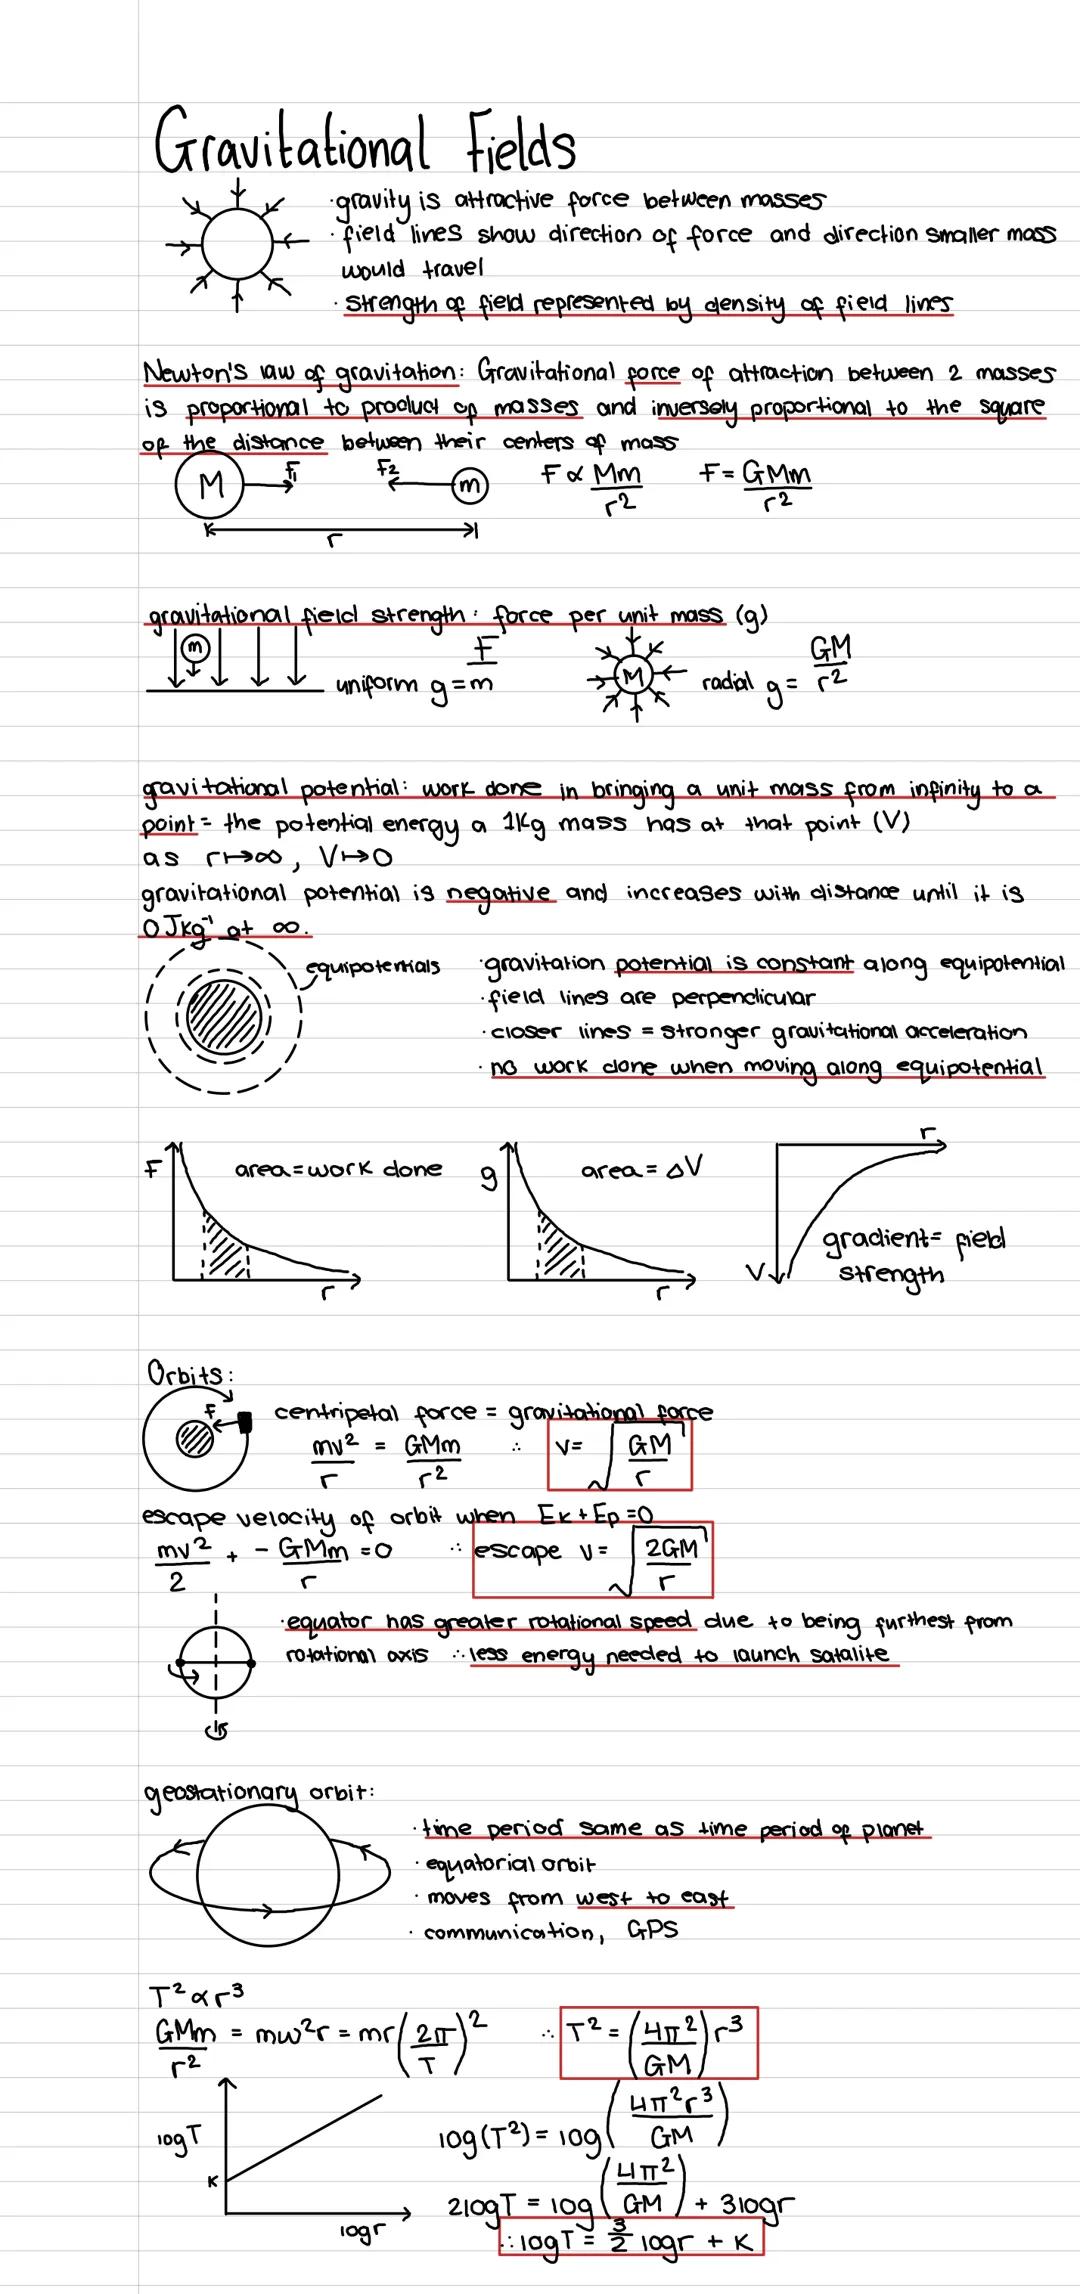 Gravitational Fields
·gravity is attractive force between masses
·field lines show direction of force and direction smaller mass
would travel
·strength of field represented by density of field lines
Newton's law of gravitation: Gravitational force of attraction between 2 masses
is proportional to product of masses and inversely proportional to the square
of the distance between their centers of mass
M F₁ F₂ m F ∝ Mm/r² F = GMm/r²
r
gravitational field strength: force per unit mass (g)
m uniform g = F/m M radial g = GM/r²
gravitational potential: work done in bringing a unit mass from infinity to a
point = the potential energy a 1Kg mass has at that point (V)
as r↦∞, V↦0
gravitational potential is negative and increases with distance until it is
0 Jkg⁻¹ at ∞.
equipotentials
·gravitation potential is constant along equipotential
·field lines are perpendicular
·closer lines = stronger gravitational acceleration
·no work done when moving along equipotential
F area=work done r
g area = ΔV r
r V gradient= field
strength
Orbits:
F centripetal force = gravitational force
mv²/r = GMm/r² ∴ v= √(GM/r)
escape velocity of orbit when Ek + Ep =0
mv²/2 + - GMm/r =0 ∴ escape v= √(2GM/r)
·equator has greater rotational speed due to being furthest from
rotational axis ∴ less energy needed to launch satalite
geostationary orbit:
·time period same as time period of planet
·equatorial orbit
·moves from west to east
·communication, GPS
T² ∝ r³
GMm/r² = mw²r = mr(2π/T)² ∴ T² = (4π²/GM) r³
log(T²) = log(4π²r³/GM)
2logT = log(4π²/GM) + 3logr
∴ logT = 3/2 logr + K
logT
K
logr